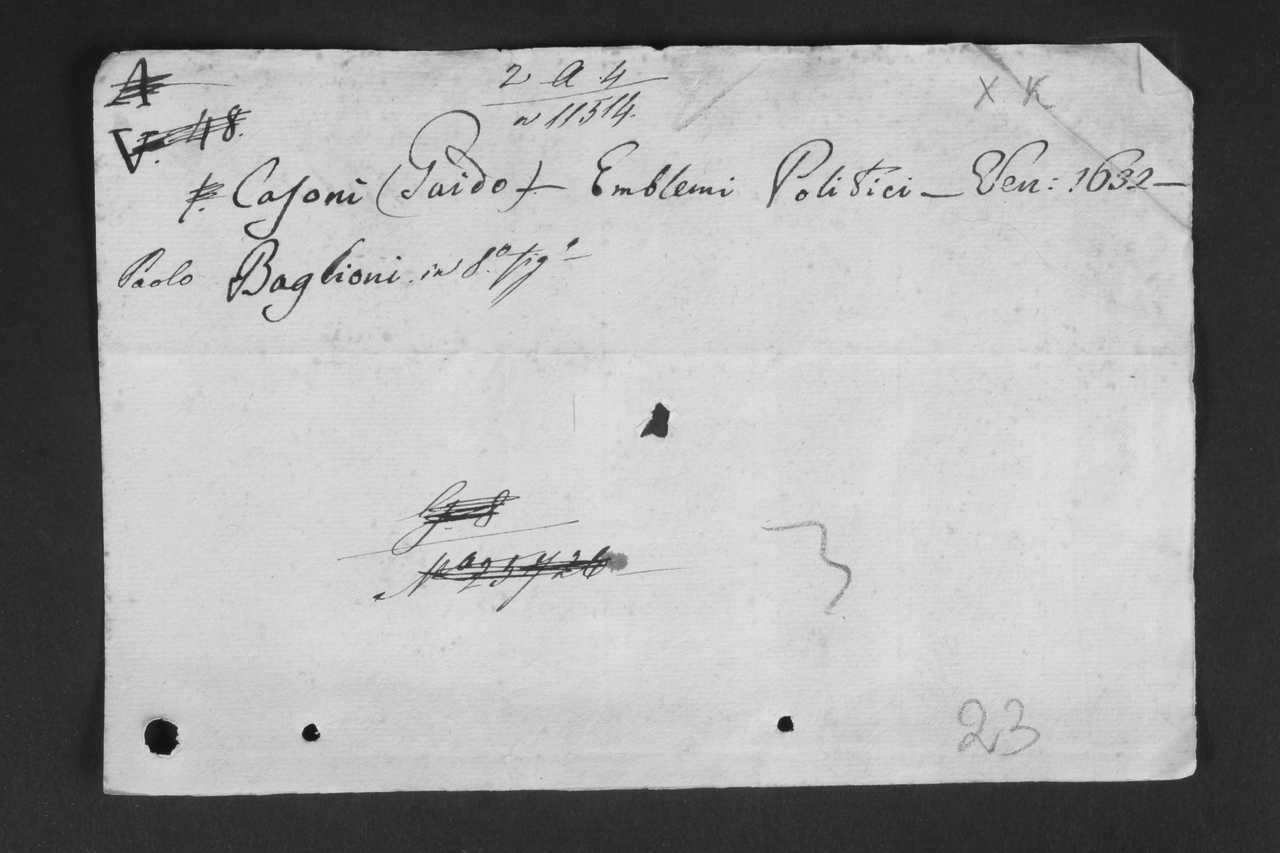 A
2 A 4
X K
V. 48.
n 11314.
Casoni (Guido) — Emblemi Politici — Ven: 1632 —
Paolo Baglioni. in 8.º fig.º
G. 8
Nº 25726
3
23